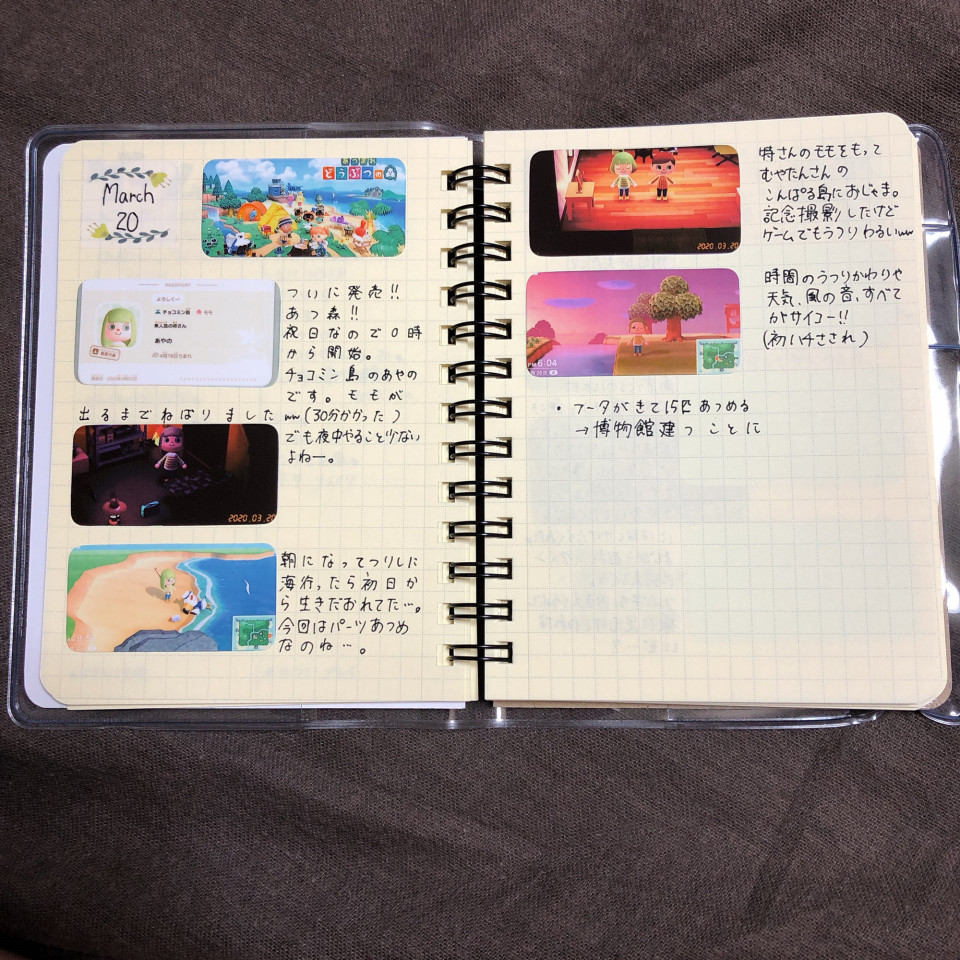 March
20
あつまれ
どうぶつの森
PASSPORT
よろしくー
チョコミン島
モモ
無人島の姉さん
あやの
4月18日うまれ
ついに発売!!
あつ森!!
祝日なので0時
から開始。
チョコミン島のあやの
です。モモが
出るまでねばりましたww(30分かかった)
でも夜中やること少ない
よねー。
2020.03.20
朝になってつりしに
海行ったら初日か
ら生きだおれてた…。
今回はパーツあつめ
なのね…。
2020.03.20
姉さんのモモをもって
むやたんさんの
こんぱる島におじゃま。
記念撮影したけど
ゲームでもうつりわるいww
時間のうつりかわりや
天気、風の音、すべて
がサイコー!!
(初ハチさされ)
PM 6:04
・フータがきて15匹あつめる
→博物館建つことに